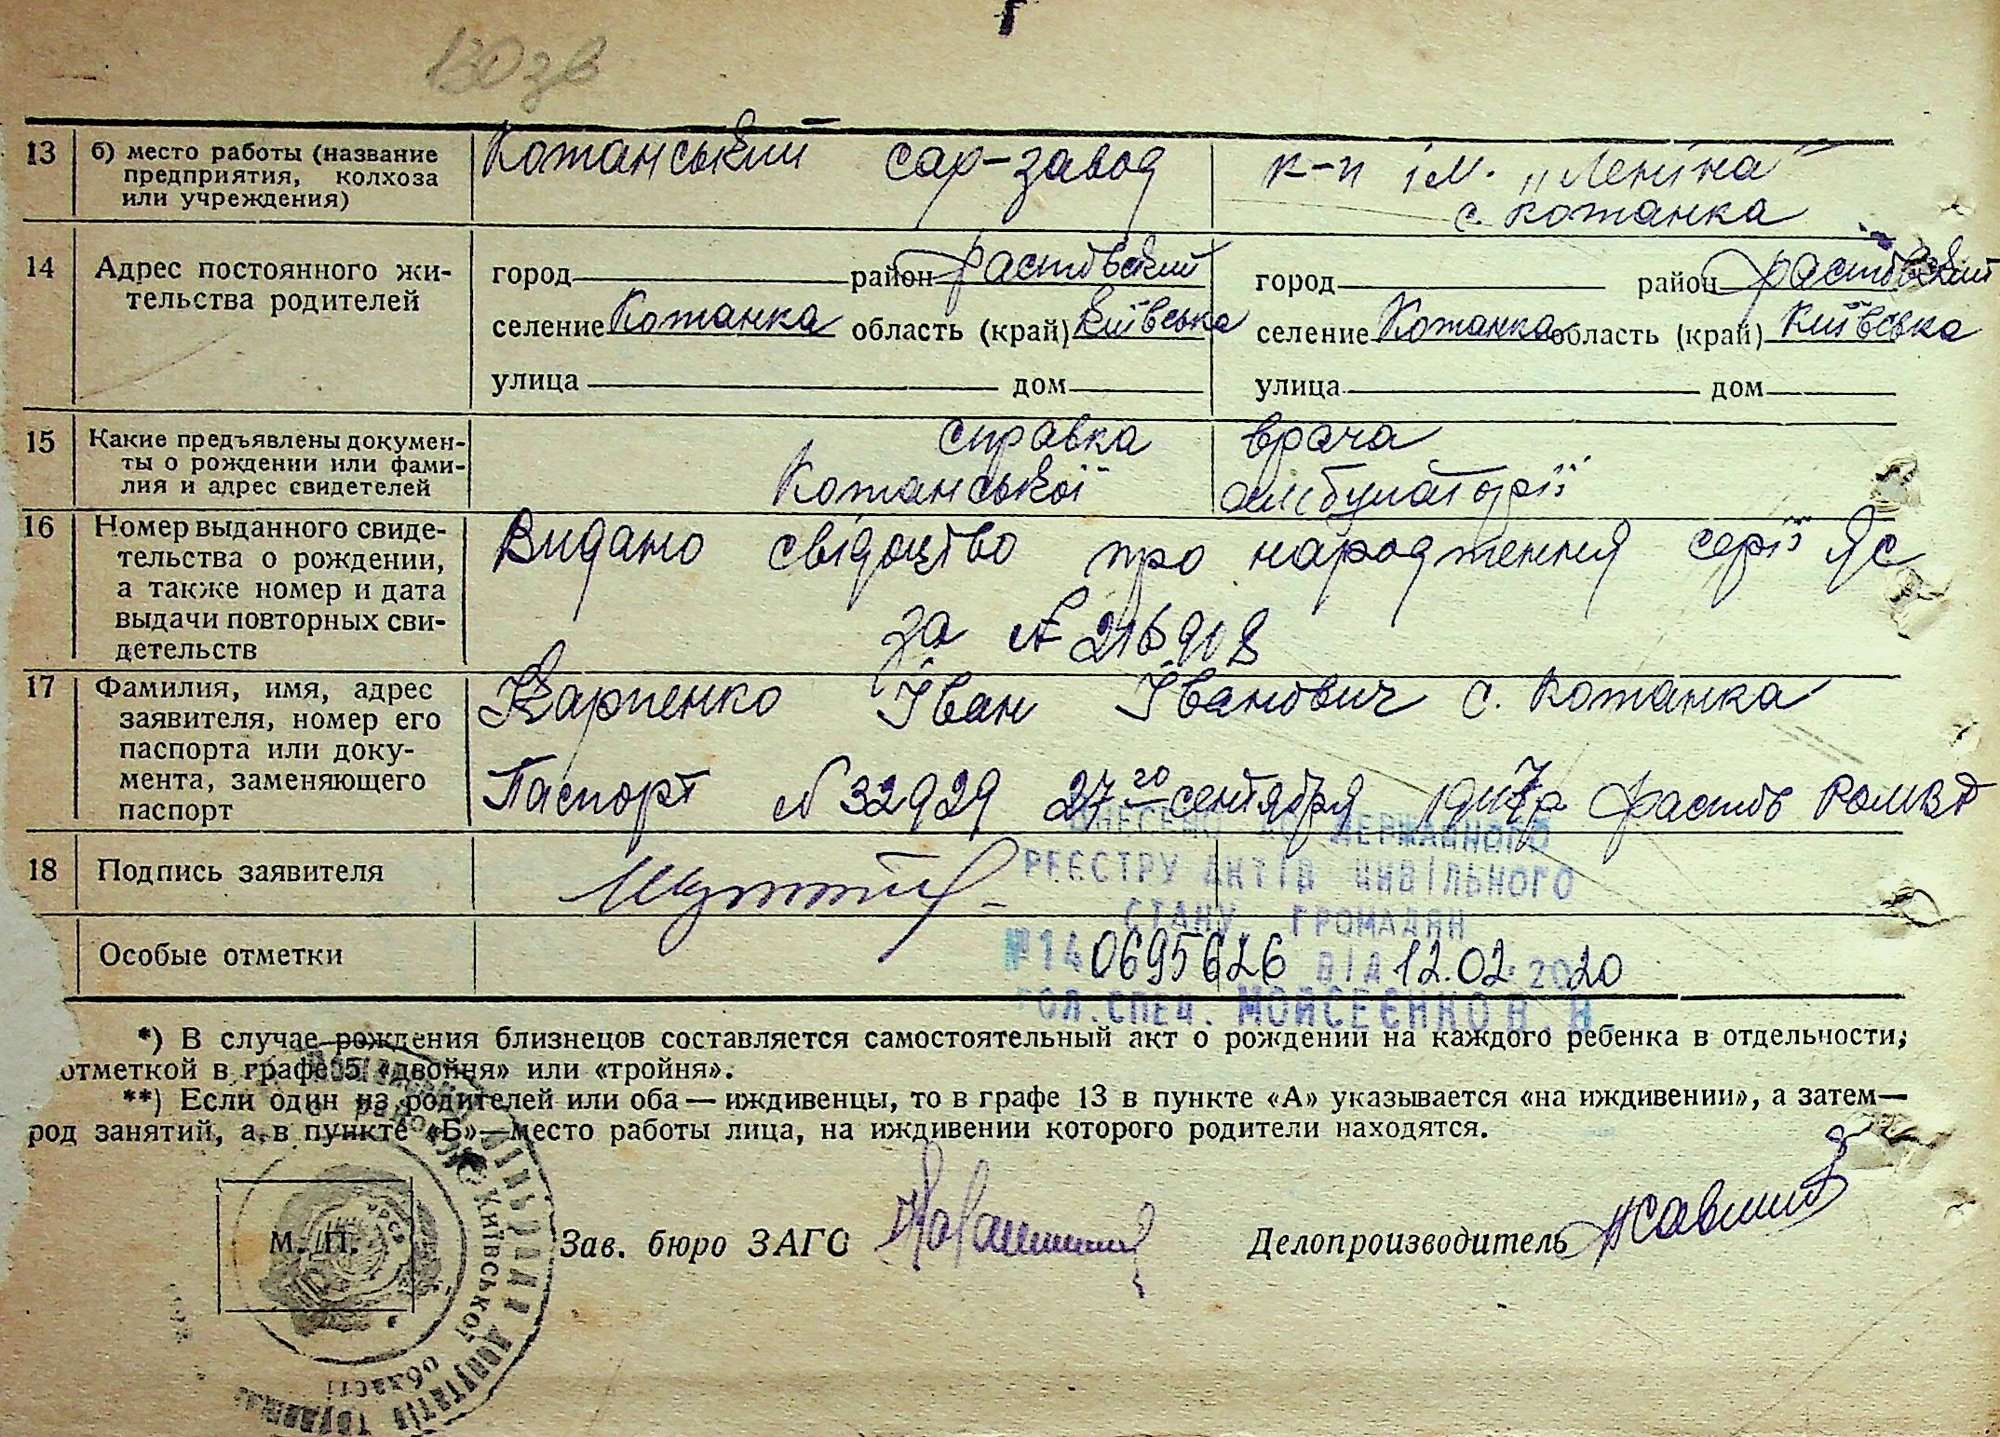 130 зв
13 б) место работы (название предприятия, колхоза или учреждения) Кожанський сах-завод к-п ім. "Леніна"
с. Кожанка
14 Адрес постоянного жительства родителей
город район Фастовский город район Фастовский
селение Кожанка область (край) Київська селение Кожанка область (край) Київська
улица дом улица дом
15 Какие предъявлены докумен-
ты о рождении или фами-
лия и адрес свидетелей
справка врача
Кожанської амбулаторії
16 Номер выданного свиде-
тельства о рождении,
а также номер и дата
выдачи повторных сви-
детельств
Видано свідоцтво про народження серії ЯС
за № 216908
17 Фамилия, имя, адрес
заявителя, номер его
паспорта или доку-
мента, заменяющего
паспорт
Карпенко Іван Іванович с. Кожанка
Паспорт № 32929 27го сентября 1947р Фастов
18 Подпись заявителя
Особые отметки
ВНЕСЕНО ДО ДЕРЖАВНОГО
РЕЄСТРУ АКТІВ ЦИВІЛЬНОГО
СТАНУ ГРОМАДЯН
№140695626 ВІД 12.02.2020
ГОЛ.СПЕЦ. МОЙСЕЄНКО В.Н.
*) В случае рождения близнецов составляется самостоятельный акт о рождении на каждого ребенка в отдельности,
отметкой в графе 5 «двойня» или «тройня».
**) Если один из родителей или оба — иждивенцы, то в графе 13 в пункте «А» указывается «на иждивении», а затем—
род занятий, а в пункте «Б»—место работы лица, на иждивении которого родители находятся.
М. П.
Зав. бюро ЗАГС
Делопроизводитель
КИЇВСЬКОЇ області